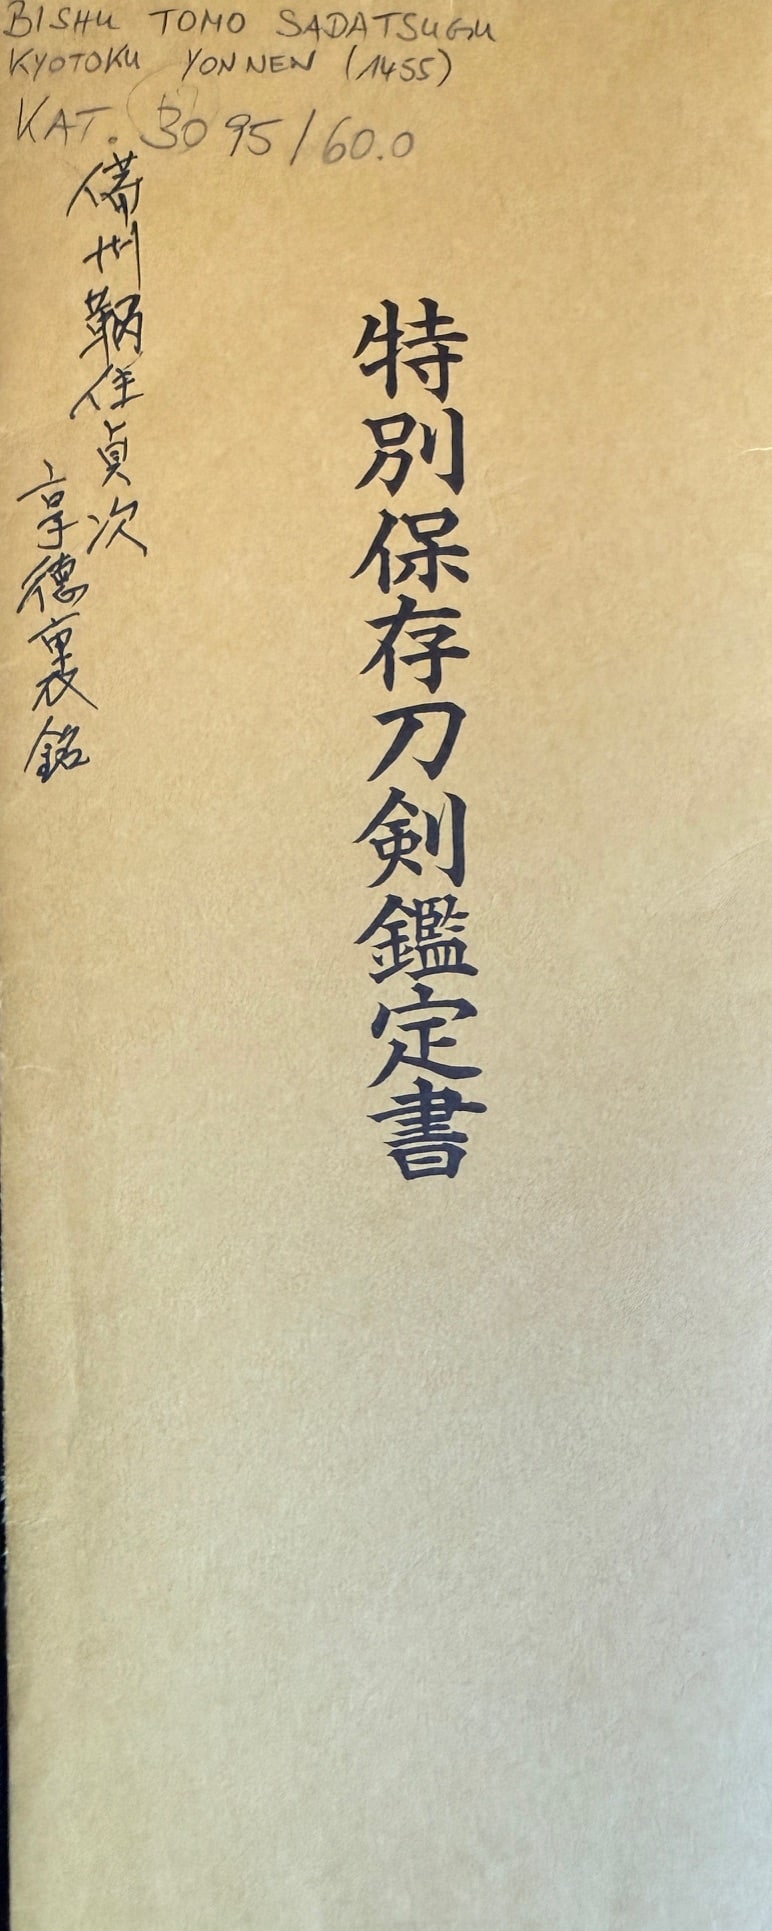 BISHU TOMO SADATSUGU
KYOTOKU YONNEN (1455)
KAT. 3095/60.0
特別保存刀剣鑑定書
備州鞆住貞次
享徳裏銘